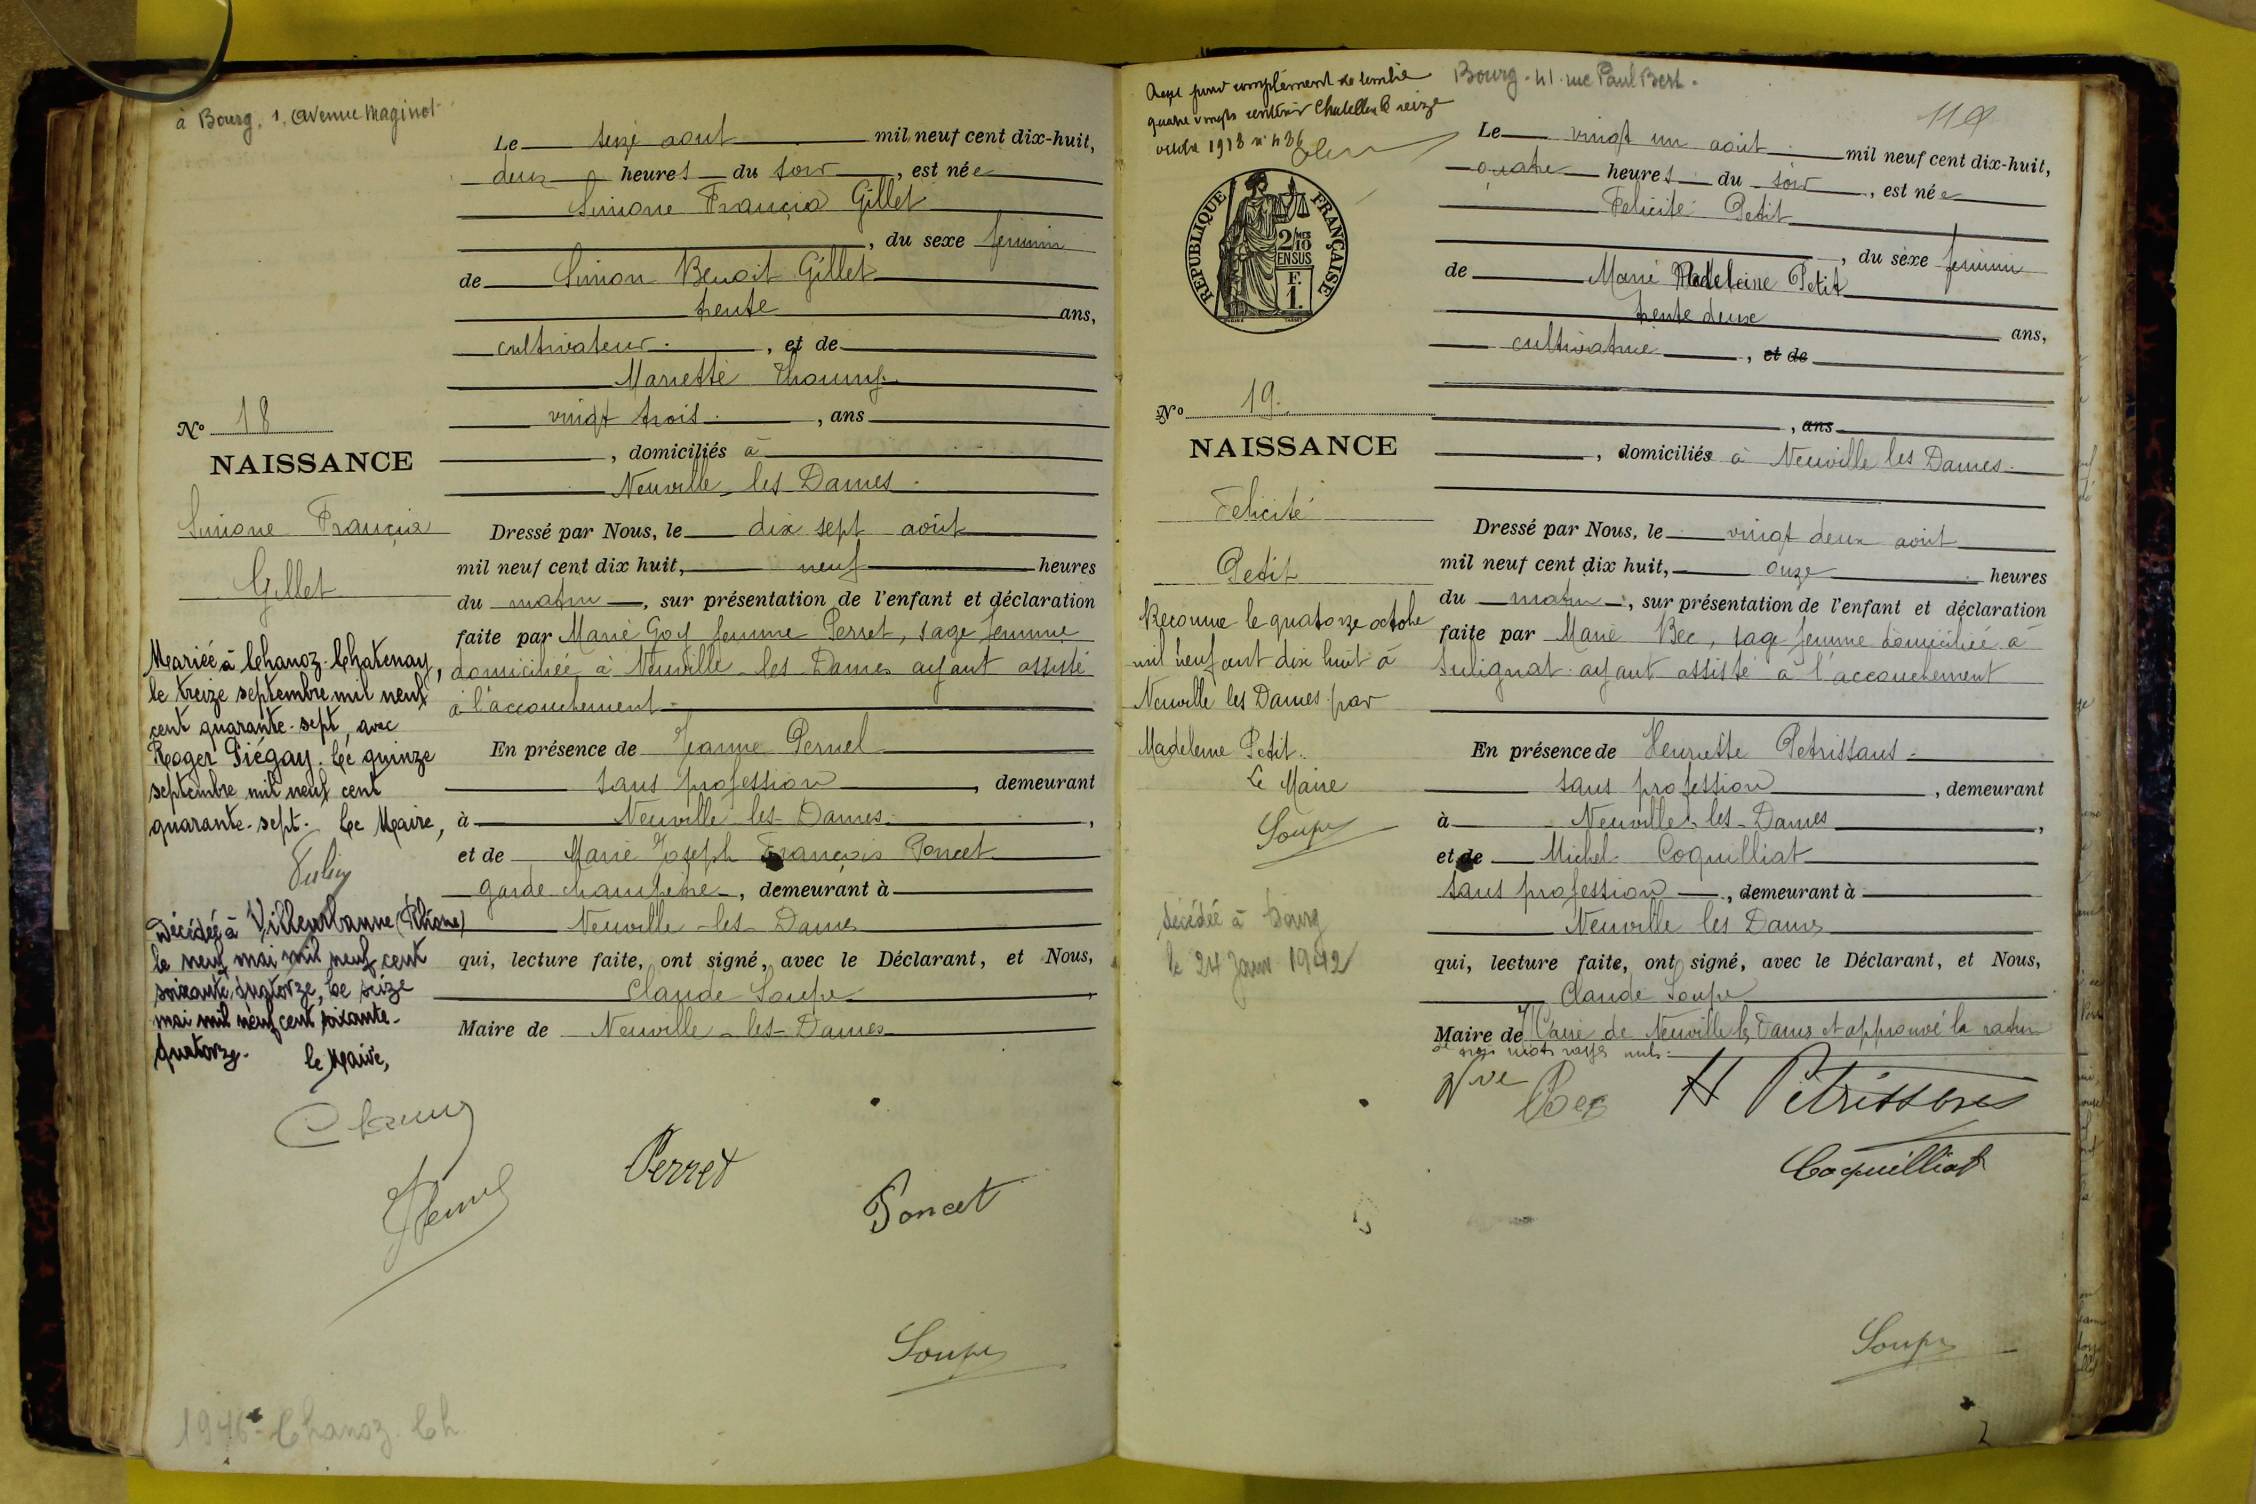 à Bourg, 1, avenue Maginot
Le seize aout mil neuf cent dix-huit,
deux heures du soir, est née
Simone Francia Gillet
, du sexe feminin
de Simon Benoit Gillet
trente ans,
cultivateur, et de
Mariette
vingt trois, ans
, domiciliés à
Neuville les Dames.
Nº 18
NAISSANCE
Simone Francia
Gillet
Dressé par Nous, le dix sept août
mil neuf cent dix huit, neuf heures
du matin, sur présentation de l'enfant et déclaration
faite par Marie Goy femme Perret, sage femme
domiciliée à Neuville les Dames ayant assisté
à l'accouchement
En présence de Jeanne Pernel
sans profession, demeurant
à Neuville les Dames,
et de Marie Joseph François Poncet
garde champêtre, demeurant à
Neuville les Dames
qui, lecture faite, ont signé, avec le Déclarant, et Nous,
Claude Soupe,
Maire de Neuville les Dames
Mariée à Chanoz-Chatenay,
le treize septembre mil neuf
cent quarante-sept, avec
Roger Piégay. Le quinze
septembre mil neuf cent
quarante-sept. Le Maire,
Décédée à Villeurbanne (Rhône)
le neuf mai mil neuf cent
soixante quatorze, le seize
mai mil neuf cent soixante-
quatorze. le Maire,
Perret
Poncet
Soupe
1946 - Chanoz. Ch
Bourg - 41 rue Paul Bert.
Reçu pour complément de timbre
quatre vingts centimes Chatillon le seize
octobre 1918 nº 436
119
RÉPUBLIQUE FRANÇAISE
2/10 MES
EN SUS
F.
1.
Le vingt un août mil neuf cent dix-huit,
quatre heures du soir, est née
Felicité Petit
, du sexe feminin
de Marie Madeleine Petit
trente deux ans,
cultivatrice, et de
, ans
, domiciliés à Neuville les Dames.
Nº 19.
NAISSANCE
Felicité
Petit
Dressé par Nous, le vingt deux aout
mil neuf cent dix huit, onze heures
du matin, sur présentation de l'enfant et déclaration
faite par Marie Bec, sage femme domiciliée à
Sulignat ayant assisté à l'accouchement
En présence de Henriette Petrissans
sans profession, demeurant
à Neuville les Dames,
et de Michel Coquilliat
sans profession, demeurant à
Neuville les Dames
qui, lecture faite, ont signé, avec le Déclarant, et Nous,
Claude Soupe
Maire de Maire de Neuville les Dames et approuvé la rature
de trois mots rayés nuls.
Reconnue le quatorze octobre
mil neuf cent dix huit à
Neuville les Dames par
Madeleine Petit.
Le Maire
Soupe
décédée à Bourg
le 24 Janv 1942
Vve Bec
H Pétrissans
Coquilliat
Soupe